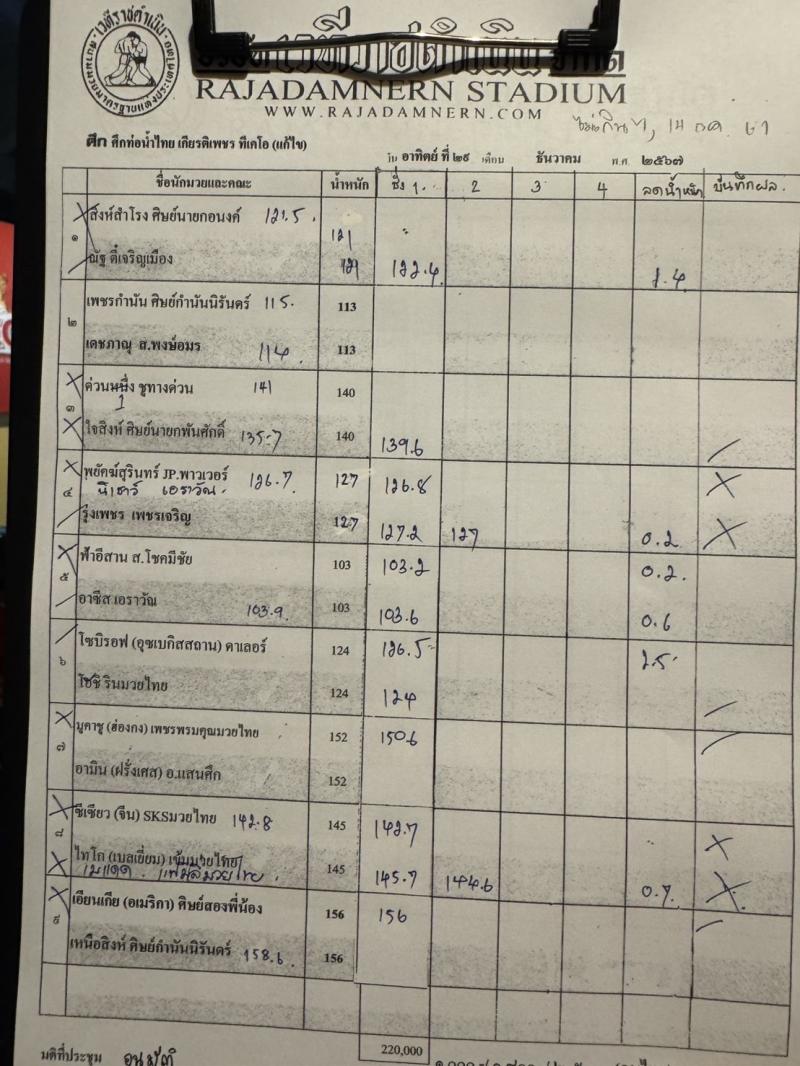 RAJADAMNERN STADIUM
WWW.RAJADAMNERN.COM
ศึก ศึกท่อน้ำไทย เกียรติเพชร ทีเคโอ (แก้ไข)
วัน อาทิตย์ ที่ ๒๙ เดือน ธันวาคม พ.ศ. ๒๕๖๗
ชื่อนักมวยและคณะ น้ำหนัก ชั่ง 1. 2 3 4 ลดน้ำหนัก บันทึกผล.
๑ สิงห์สำโรง ศิษย์นายกอนงค์ 121.5. 121
ณัฐ ตี๋เจริญเมือง 121 122.4 1.4
๒ เพชรกำนัน ศิษย์กำนันนิรันดร์ 115. 113
เดชภาณุ ส.พงษ์อมร 114. 113
๓ ด่วนหนึ่ง ชูทางด่วน 141 140
1
ใจสิงห์ ศิษย์นายกพันศักดิ์ 135.7 140 139.6
๔ พยัคฆ์สุรินทร์ JP.พาวเวอร์ 126.7 127 126.8
เอราวัณ.
รุ่งเพชร เพชรเจริญ 127 127.2 127 0.2
๕ ฟ้าอีสาน ส.โชคมีชัย 103 103.2 0.2.
อาซีส เอราวัณ 103.9. 103 103.6 0.6
๖ โซบิรอฟ (อุซเบกิสสถาน) คาเลอร์ 124 126.5 2.5
โชชิ รินมวยไทย 124 124
๗ มูคาซู (ฮ่องกง) เพชรพรมคุณมวยไทย 152 150.6
อามิน (ฝรั่งเศส) อ.แสนศึก 152
๘ ซีเซียว (จีน) SKSมวยไทย 142.8 145 142.7
ไทโก (เบลเยี่ยม) เข้มมวยไทย 145 145.7 144.6 0.7
๙ เอียนเกีย (อเมริกา) ศิษย์สองพี่น้อง 156 156
เหนือสิงห์ ศิษย์กำนันนิรันดร์ 158.6. 156
220,000
มติที่ประชุม อนุมัติ